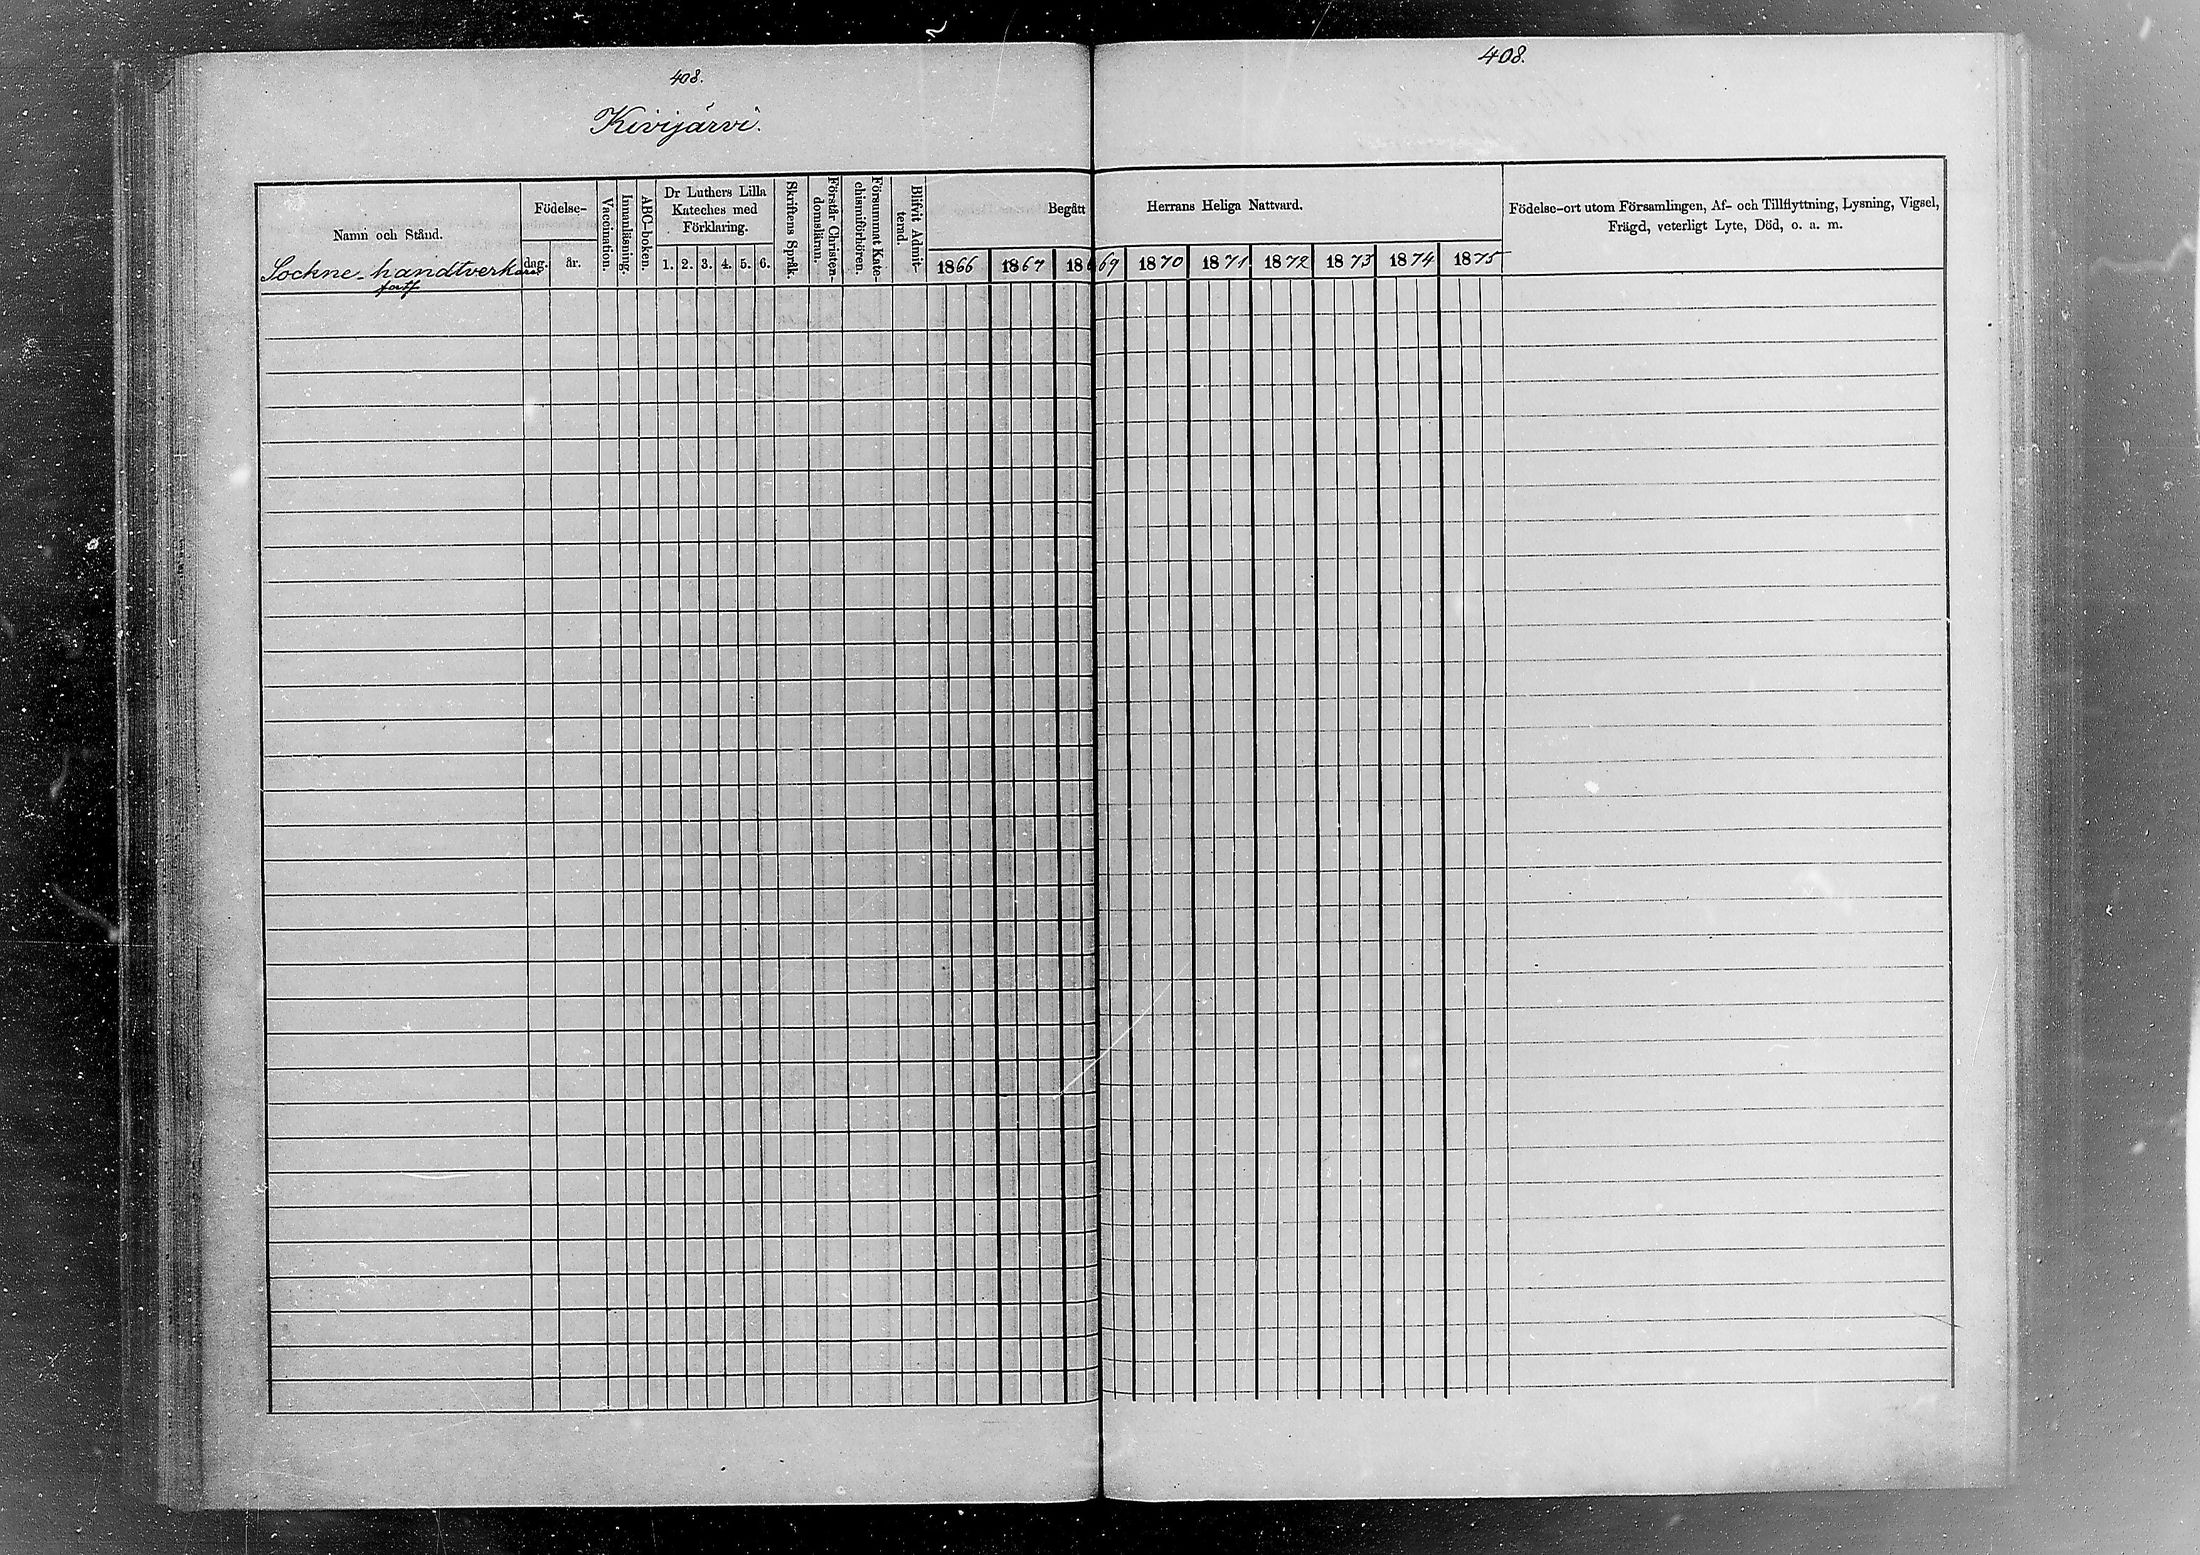 408.
Kivijärvi.
408.
Namn och Stånd.
Födelse-
dag. år.
Vaccination.
Innanläsning.
ABC-boken.
Dr Luthers Lilla
Kateches med
Förklaring.
1. 2. 3. 4. 5. 6.
Skriftens Språk.
Förstår Christen-
domsläran.
Försummat Kate-
chismiförhören.
Blifvit Admit-
terad.
Begått Herrans Heliga Nattvard.
1866 1867 18 69 1870 1871 1872 1873 1874 1875
Födelse-ort utom Församlingen, Af- och Tillflyttning, Lysning, Vigsel,
Frägd, veterligt Lyte, Död, o. a. m.
Sockne-handtverkare